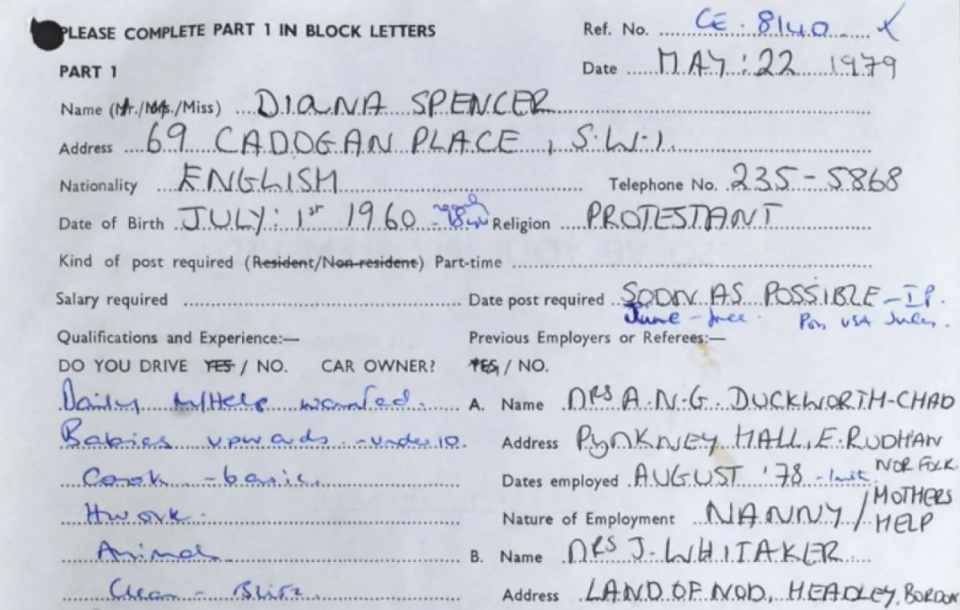 PLEASE COMPLETE PART 1 IN BLOCK LETTERS
Ref. No. CE . 8140
PART 1
Date MAY : 22 1979
Name (Mr./Mrs./Miss) DIANA SPENCER
Address 69 CADOGAN PLACE, S.W.1.
Nationality ENGLISH Telephone No. 235-5868
Date of Birth JULY: 1st 1960 Religion PROTESTANT
Kind of post required (Resident/Non-resident) Part-time
Salary required Date post required SOON AS POSSIBLE
June - free. USA July.
Qualifications and Experience:— Previous Employers or Referees:—
DO YOU DRIVE YES / NO. CAR OWNER? YES / NO.
Daily M/Help wanted. A. Name MRS A.N.G. DUCKWORTH-CHAD
Babies upwards - under 10. Address PYNKNEY HALL, E. RUDHAN
NORFOLK
Cook - basic. Dates employed AUGUST '78
Hwork. Nature of Employment NANNY / MOTHERS HELP
Animals B. Name MRS J. WHITAKER
Clean - Blitz. Address LAND OF NOD, HEADLEY, BORDON